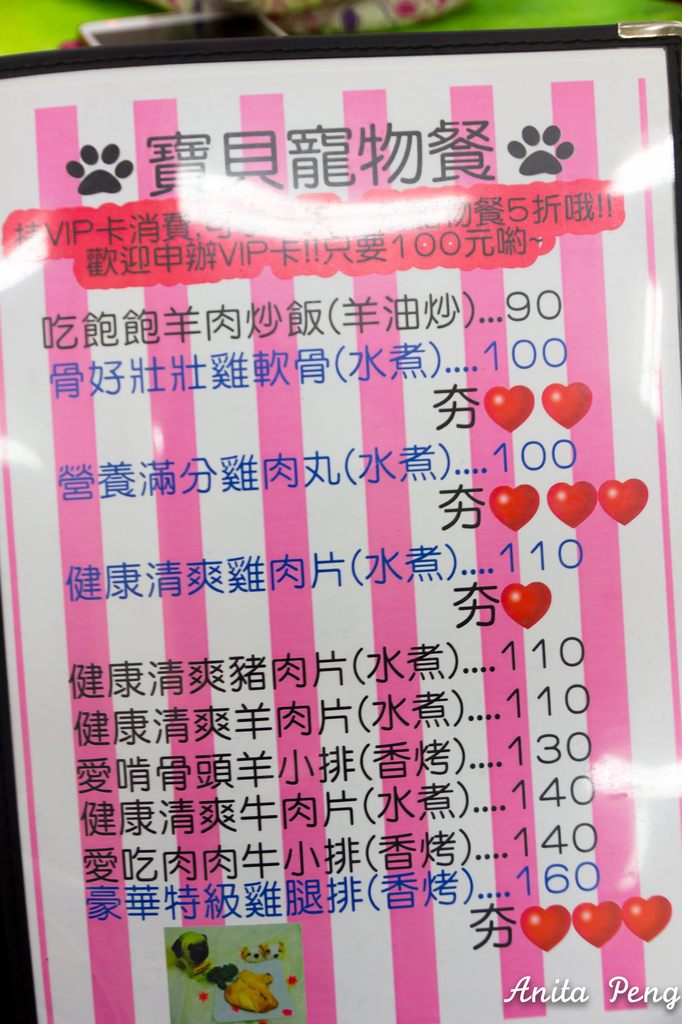 寶貝寵物餐
持VIP卡消費,可 物餐5折哦!!
歡迎申辦VIP卡!!只要100元喲~
吃飽飽羊肉炒飯(羊油炒)...90
骨好壯壯雞軟骨(水煮)....100
夯
營養滿分雞肉丸(水煮)....100
夯
健康清爽雞肉片(水煮)....110
夯
健康清爽豬肉片(水煮)....110
健康清爽羊肉片(水煮)....110
愛啃骨頭羊小排(香烤)....130
健康清爽牛肉片(水煮)....140
愛吃肉肉牛小排(香烤)....140
豪華特級雞腿排(香烤)....160
夯
Anita Peng